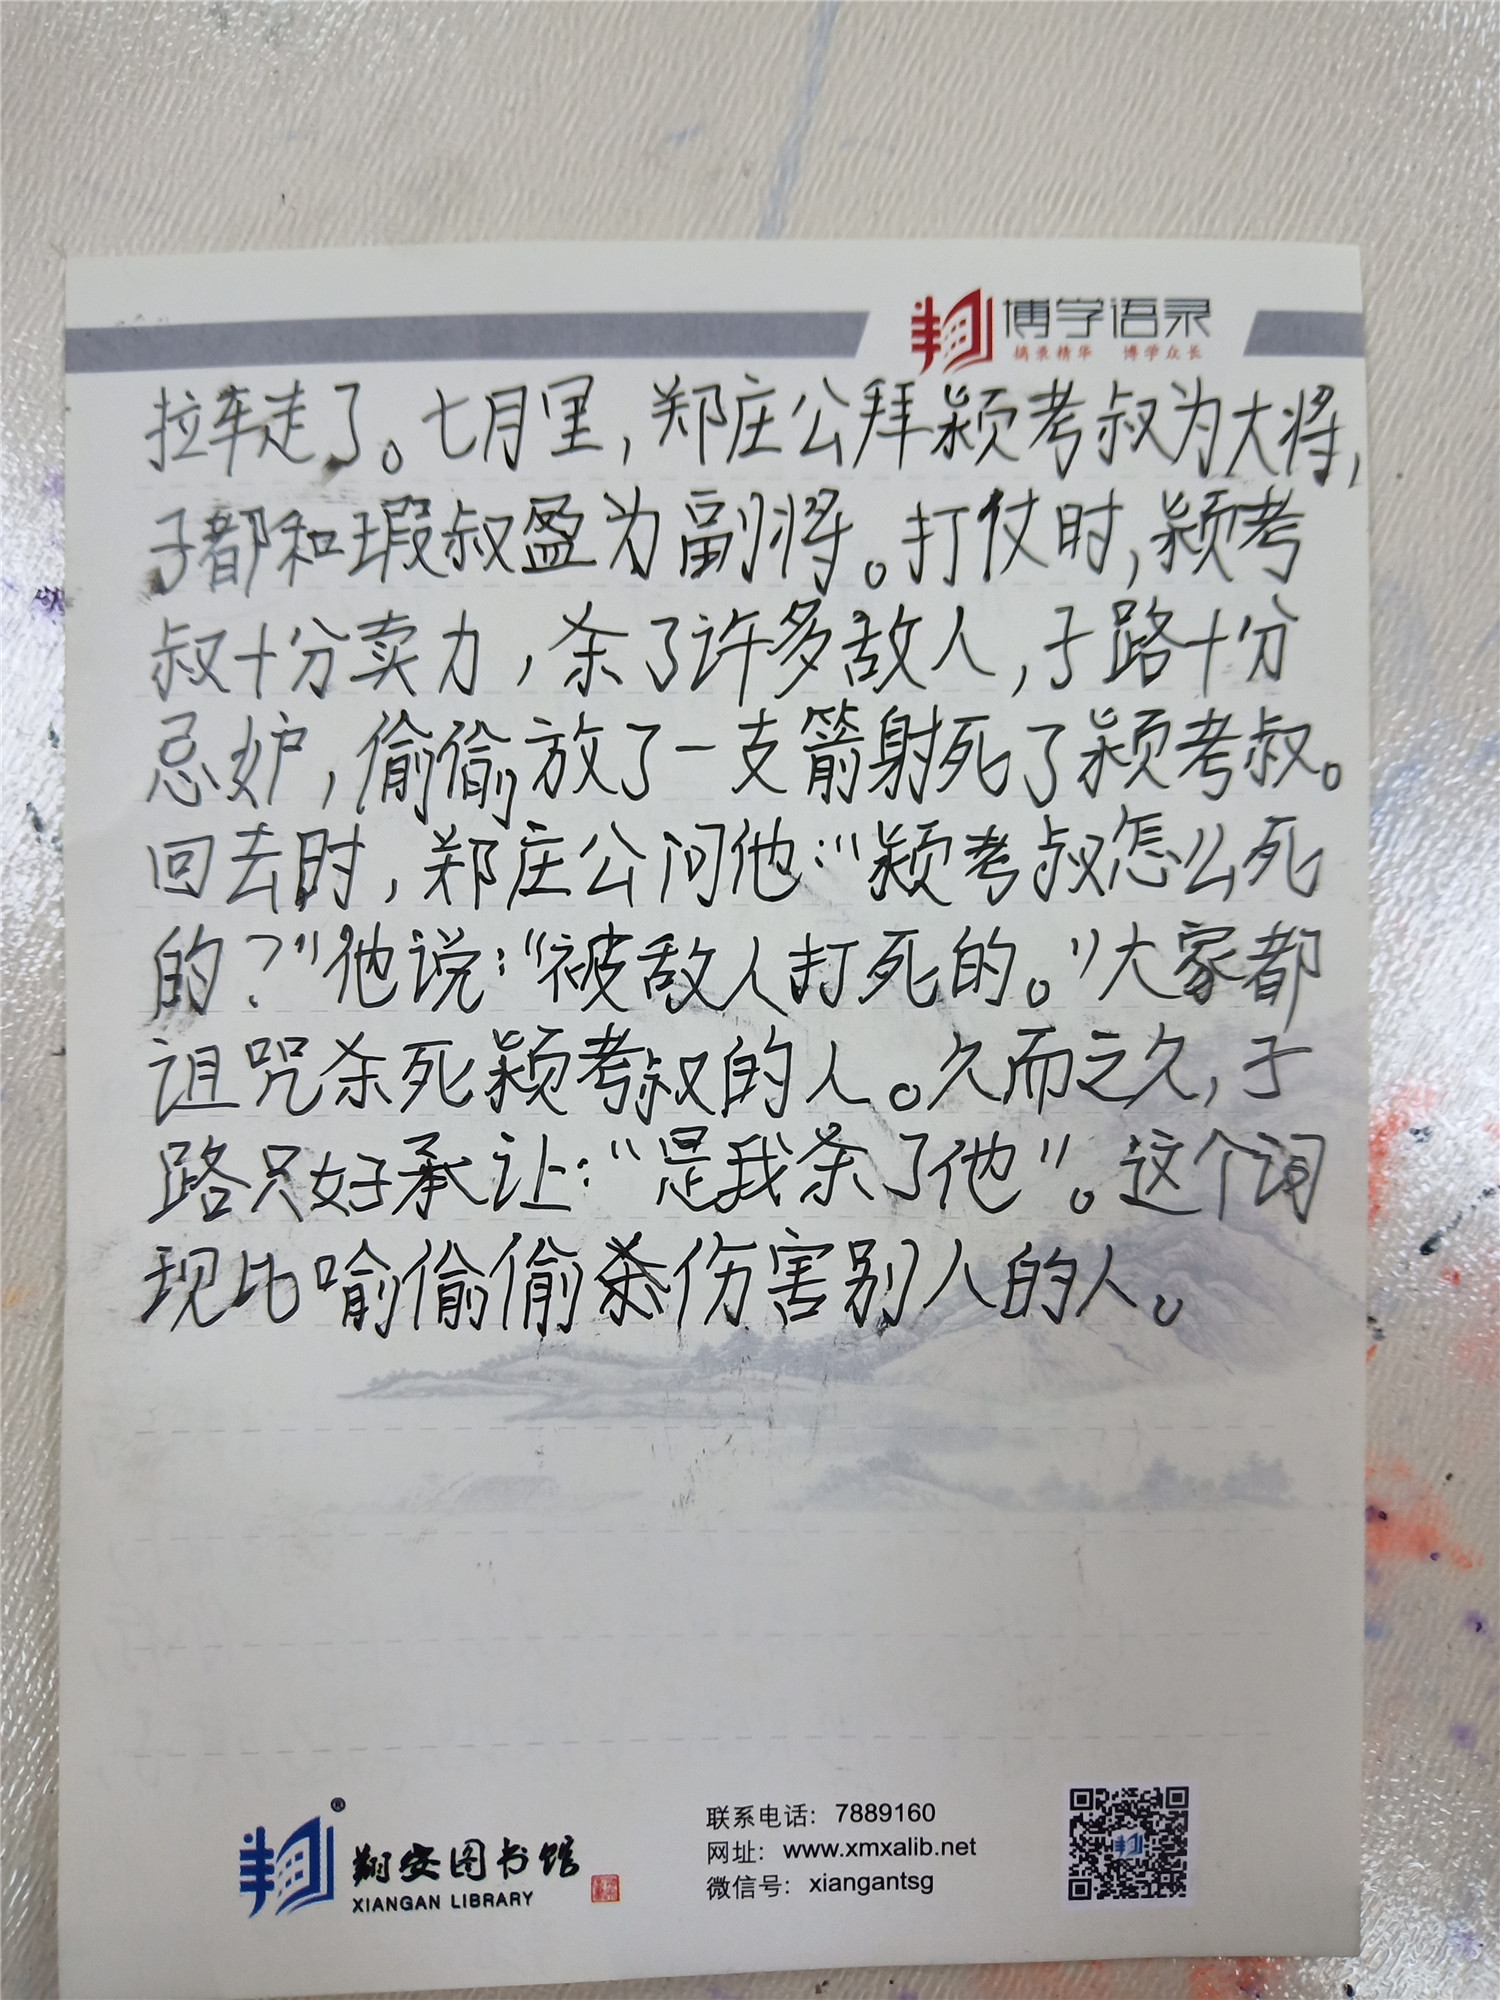 博学语录
摘录精华 博学众长
拉车走了。七月里，郑庄公拜颍考叔为大将，
子都和瑕叔盈为副将。打仗时，颍考
叔十分卖力，杀了许多敌人，于路十分
忌妒，偷偷放了一支箭射死了颍考叔。
回去时，郑庄公问他：“颍考叔怎么死
的？”他说：“被敌人打死的。”大家都
诅咒杀死颍考叔的人。久而之久，于
路只好承让：“是我杀了他”。这个词
现比喻偷偷杀伤害别人的人。
翔安图书馆
XIANGAN LIBRARY
联系电话：7889160
网址：www.xmxalib.net
微信号：xiangantsg